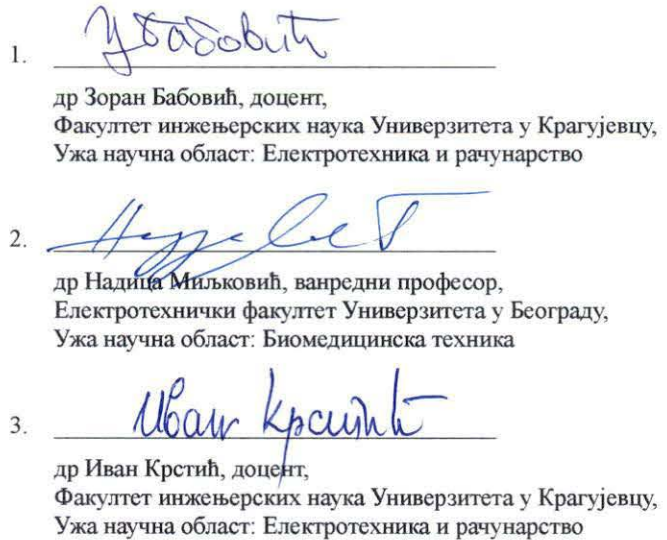 1. Бабовић
др Зоран Бабовић, доцент,
Факултет инжењерских наука Универзитета у Крагујевцу,
Ужа научна област: Електротехника и рачунарство
2.
др Надица Миљковић, ванредни професор,
Електротехнички факултет Универзитета у Београду,
Ужа научна област: Биомедицинска техника
3. Иван Крстић
др Иван Крстић, доцент,
Факултет инжењерских наука Универзитета у Крагујевцу,
Ужа научна област: Електротехника и рачунарство